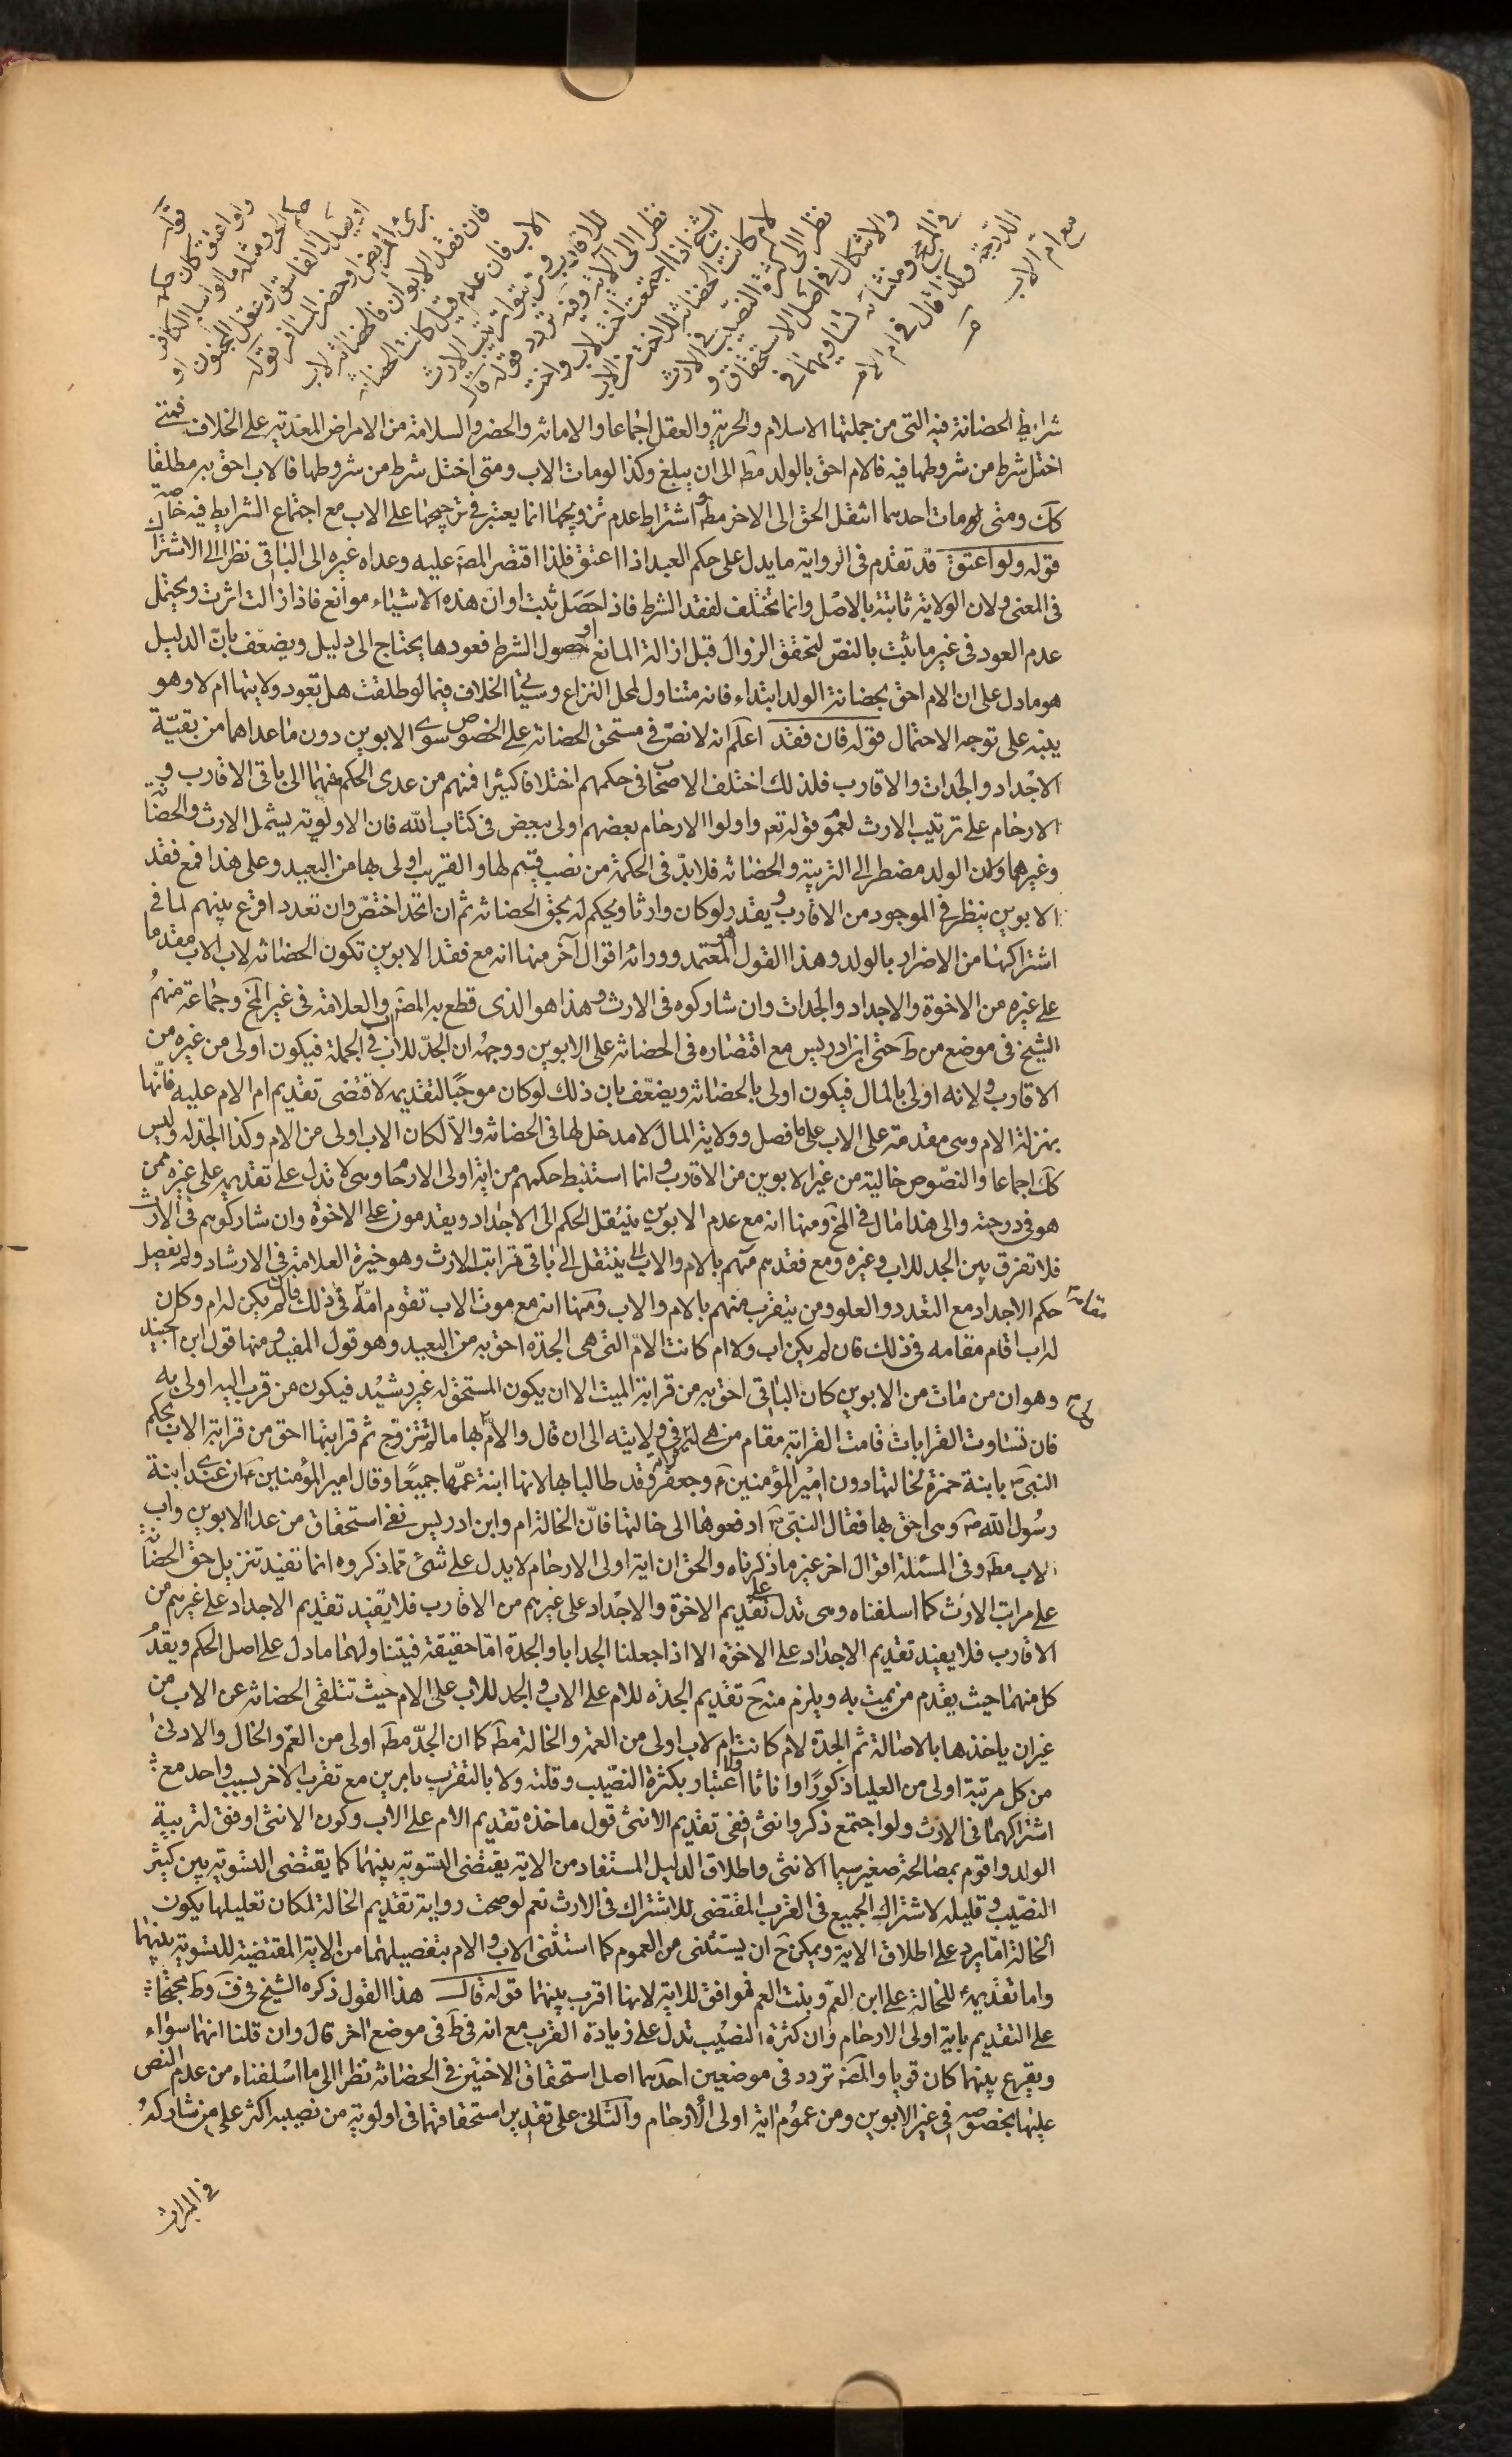 قوله
ولو اعتق كان حكمه
حكم الحر ومثله ما لو اسلم الكافر
او يعدل الفاسق او عقل المجنون او
برئ المريض او حضر المسافر قوله
فان فقد الابوان فالحضانة لاب
الاب فان عدم قيل كانت الحضانة
للاقارب وترتبوا ترتب الارث
نظرا الى الآية وفيه تردد قوله قال
الشيخ اذا اجتمعت اخت لاب واخت
لام كانت الحضانة للاخت من الاب
نظرا الى كثرة النصيب في الارث
والاشكال في اصل الاستحقاق و
في الترجيح ومنشأه تساويهما في
الدرجة وكذا قال في ام الام
مع ام الاب
شرايط الحضانة فيه التي من جملتها الاسلام والحرية والعقل اجماعا والامانة والحضر والسلامة من الامراض المعدية على الخلاف فمتى
اختل شرط من شروطها فيه فالام احق بالولد مط الى ان يبلغ وكذا لو مات الاب ومتى اختل شرط من شروطها فالاب احق به مطلقا
كك ومتى مات احدهما انتقل الحق الى الاخر مط واشتراط عدم تزويجها انما يعتبر في ترجيحها على الاب مع اجتماع الشرايط فيه خاصة
قوله ولو اعتق قد تقدم في الرواية ما يدل على حكم العبد اذا اعتق فلذا اقتصر المص عليه وعداه غيره الى الباقي نظرا الى الاشتراك
في المعنى ولان الولاية ثابتة بالاصل وانما تختلف لفقد الشرط فاذا حصل ثبت او ان هذه الاشياء موانع فاذا زالت اثرت ويحتمل
عدم العود في غير ما ثبت بالنص لتحقق الزوال قبل ازالة المانع او حصول الشرط فعودها يحتاج الى دليل ويضعف بان الدليل
هو ما دل على ان الام احق بحضانة الولد ابتداء فانه متناول لمحل النزاع وسياتي الخلاف فيما لو طلقت هل تعود ولايتها ام لا وهو
ينبه على توجه الاحتمال قوله فان فقد اعلم انه لا نص في مستحق الحضانة على الخصوص سوى الابوين دون ما عداهما من بقية
الاجداد والجدات والاقارب فلذلك اختلف الاصحاب في حكمهم اختلافا كثيرا فمنهم من عدى الحكم عنهما الى باقي الاقارب و
الارحام على ترتيب الارث لعموم قوله تعه واولوا الارحام بعضهم اولى ببعض في كتاب الله فان الاولوية يشمل الارث والحضانة
وغيرهما ولان الولد مضطر الى التربية والحضانة فلا بد في الحكمة من نصب قيم لها والقريب اولى بها من البعيد وعلى هذا فمع فقد
الابوين ينظر في الموجود من الاقارب ويقدر لو كان وارثا ويحكم له بحق الحضانة ثم ان اتحد اختص وان تعدد اقرع بينهم لما في
اشتراكها من الاضرار بالولد وهذا القول هو المعتمد وورائه اقوال آخر منها انه مع فقد الابوين تكون الحضانة لاب الاب مقدما
على غيره من الاخوة والاجداد والجدات وان شاركوه في الارث وهذا هو الذي قطع به المص والعلامة في غير المخ وجماعة منهم
الشيخ في موضع من ط حتى ابن ادريس مع اقتصاره في الحضانة على الابوين ووجهه ان الجد للاب اب في الجملة فيكون اولى من غيره من
الاقارب ولانه اولى بالمال فيكون اولى بالحضانة ويضعف بان ذلك لو كان موجبا لتقديمه لاقتضى تقديم ام الام عليه فانها
بمنزلة الام وهي مقدمة على الاب على ما فصل وولاية المال لا مدخل لها في الحضانة والا لكان الاب اولى من الام وكذا الجد له وليس
كك اجماعا والنصوص خالية من غير الابوين من الاقارب وانما استنبط حكمهم من اية اولى الارحام وهي لا تدل على تقديمه على غيره ممن
هو في درجته والى هذا مال في المخ ومنها انه مع عدم الابوين ينتقل الحكم الى الاجداد ويقدمون على الاخوة وان شاركوهم في الارث
فلا تفرق بين الجد للاب وغيره ومع فقدهم منهم بالام والاب ينتقل الى باقي قرابت الارث وهو خيرة العلامة في الارشاد ولم يفصل
حكم الاجداد مع التعدد والعلو ومن يتقرب منهم بالام والاب ومنها انه مع موت الاب تقوم امه مقامه في ذلك فان لم يكن له ام وكان
له اب اقام مقامه في ذلك فان لم يكن اب ولا ام كانت الام التي هي الجدة احق به من البعيد وهو قول المفيد ومنها قول ابن الجنيد
وهو ان من مات من الابوين كان الباقي احق به من قرابة الميت الا ان يكون المستحق له غير رشيد فيكون من قرب اليه اولى به
فان تساوت القرابات قامت القرابة مقام من هي له في ولايته الى ان قال والام بها ما لم تتزوج ثم قرابتها احق من قرابة الاب لحكم
النبي ص بابنة حمزة لخالتها دون امير المؤمنين ع وجعفر وقد طالبا بها لانها ابنة عمهما جميعا وقال امير المؤمنين ع ان عندي ابنة
رسول الله ص وهي احق بها فقال النبي ص ادفعوها الى خالتها فان الخالة ام وابن ادريس نفى استحقاق من عدا الابوين واب
الاب مط وفي المسئلة اقوال اخر غير ما ذكرناه والحق ان اية اولى الارحام لا يدل على شئ مما ذكروه انما تفيد تنزيل حق الحضانة
على مراتب الارث كما اسلفناه وهي تدل على تقديم الاخوة والاجداد على غيرهم من الاقارب فلا يفيد تقديم الاجداد على غيرهم من
الاقارب فلا يفيد تقديم الاجداد على الاخوة الا اذا جعلنا الجد ابا والجدة اما حقيقة فيتناولهما ما دل على اصل الحكم ويقدم
كل منهما حيث يقدم من يمت به ويلزم منه ح تقديم الجدة للام على الاب والجد للاب على الام حيث تتلقى الحضانة عن الاب من
غير ان ياخذها بالاصالة ثم الجدة لام كانت ام لاب اولى من العمة والخالة مط كما ان الجد مط اولى من العم والخال والادنى
من كل مرتبة اولى من العليا ذكورا او اناثا ولا اعتبار بكثرة النصيب وقلته ولا بالتقرب بامرين مع تقرب الاخر بسبب واحد مع
اشتراكهما في الارث ولو اجتمع ذكر وانثى ففي تقديم الانثى قول ماخذه تقديم الام على الاب وكون الانثى اوفق لتربية
الولد واقوم بمصالحه صغير سيما الانثى واطلاق الدليل المستفاد من الاية يقتضى التسوية بينهما كما يقتضى التسوية بين كثير
النصيب وقليله لاشتراك الجميع في القرب المقتضى للاشتراك في الارث نعم لو صحت رواية تقديم الخالة لمكان تعليلها يكون
الخالة اما يرد على اطلاق الاية ويمكن ح ان يستثنى من العموم كما استثنى الاب والام بتفصيلهما من الاية المقتضية للتسوية بينهما
واما تقديمه للخالة على ابن العم وبنت العم فموافق للاية لانها اقرب بينهما قوله قال هذا القول ذكره الشيخ في ف وط محتجا
على التقديم باية اولى الارحام وان كثرة النصيب تدل على زيادة القرب مع انه في ط في موضع اخر قال وان قلنا انهما سواء
ويقرع بينهما كان قويا والمص تردد في موضعين احدهما اصل استحقاق الاختين في الحضانة نظرا الى ما اسلفناه من عدم النص
عليها بخصوصه في غير الابوين ومن عموم اية اولى الارحام والثاني على تقدير استحقاقهما في اولوية من نصيبه اكثر على من شاركه
في الميراث